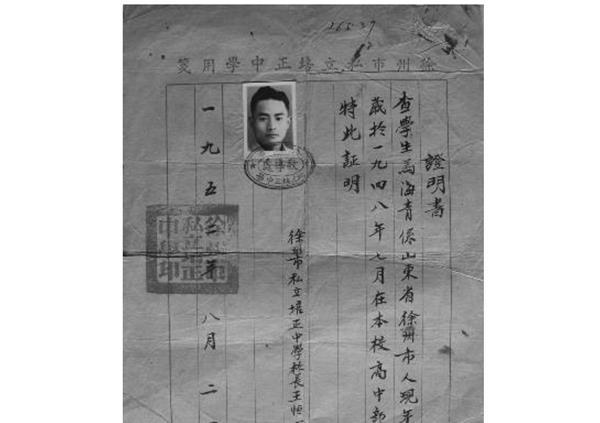 徐州市私立培正中學用箋
證明書
查學生馬海青係山東省徐州市人現年
歲於一九四八年七月在本校高中部
特此証明
徐州市私立培正中學校長王恒
一九五二年八月二
教導處
徐州市
私立培正
中學印